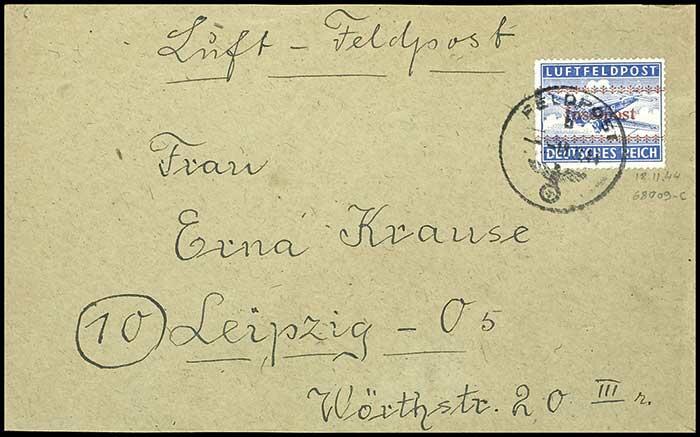 Luft - Feldpost
LUFTFELDPOST
Inselpost
DEUTSCHES REICH
FELDPOST
18.11.44
68009-C
Frau
Erna Krause
10 Leipzig - O 5
Wörthstr. 20 III r.